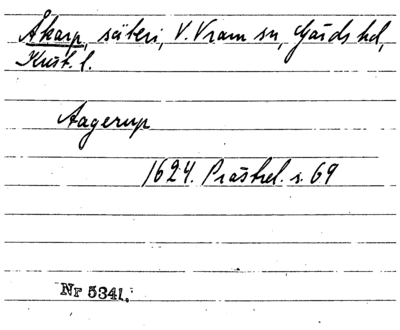 Åkarp, säteri, V. Vram sn, Gärds hd,
Krist. l.
Aagerup
1624. Prästrel. s. 69
Nr 5341.